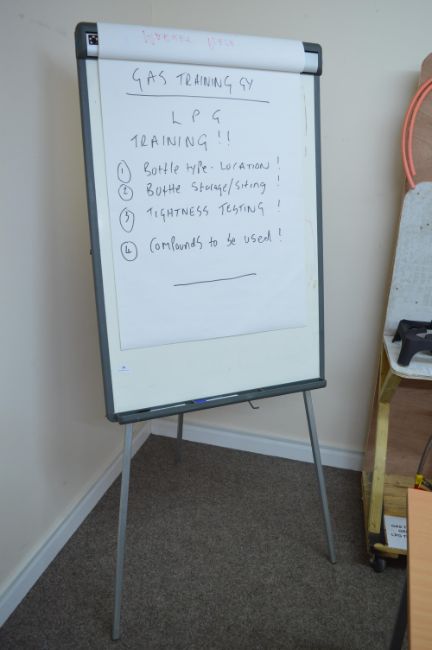 GAS TRAINING GY
L P G
TRAINING!!
1 Bottle type - Location!
2 Bottle Storage/Siting!
3 TIGHTNESS TESTING!
4 Compounds to be used!